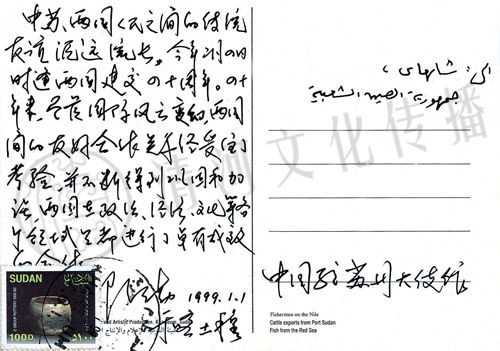 中苏、两国人民之间的传统
友谊源远流长。今年2月4日
时逢两国建交四十周年。四十
年来，尽管国际风云变幻，两国
间的友好合作关系经受住了
考验，并不断得到巩固和加
强，两国在政治、经济、文化等各
个领域里都进行了卓有成效
的合作。
1999.1.1
于喀土穆
SUDAN
100D.
إلى: شنغهاي،
جمهورية الصين الشعبية
中国驻苏丹大使馆
Fishermen on the Nile
Cattle exports from Port Sudan
Fish from the Red Sea
清朔文化传播